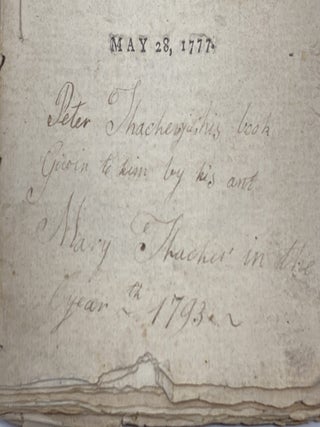 MAY 28, 1777.
Peter Thacher his book
Givin to him by his ant
Mary Thacher in the
year th 1793